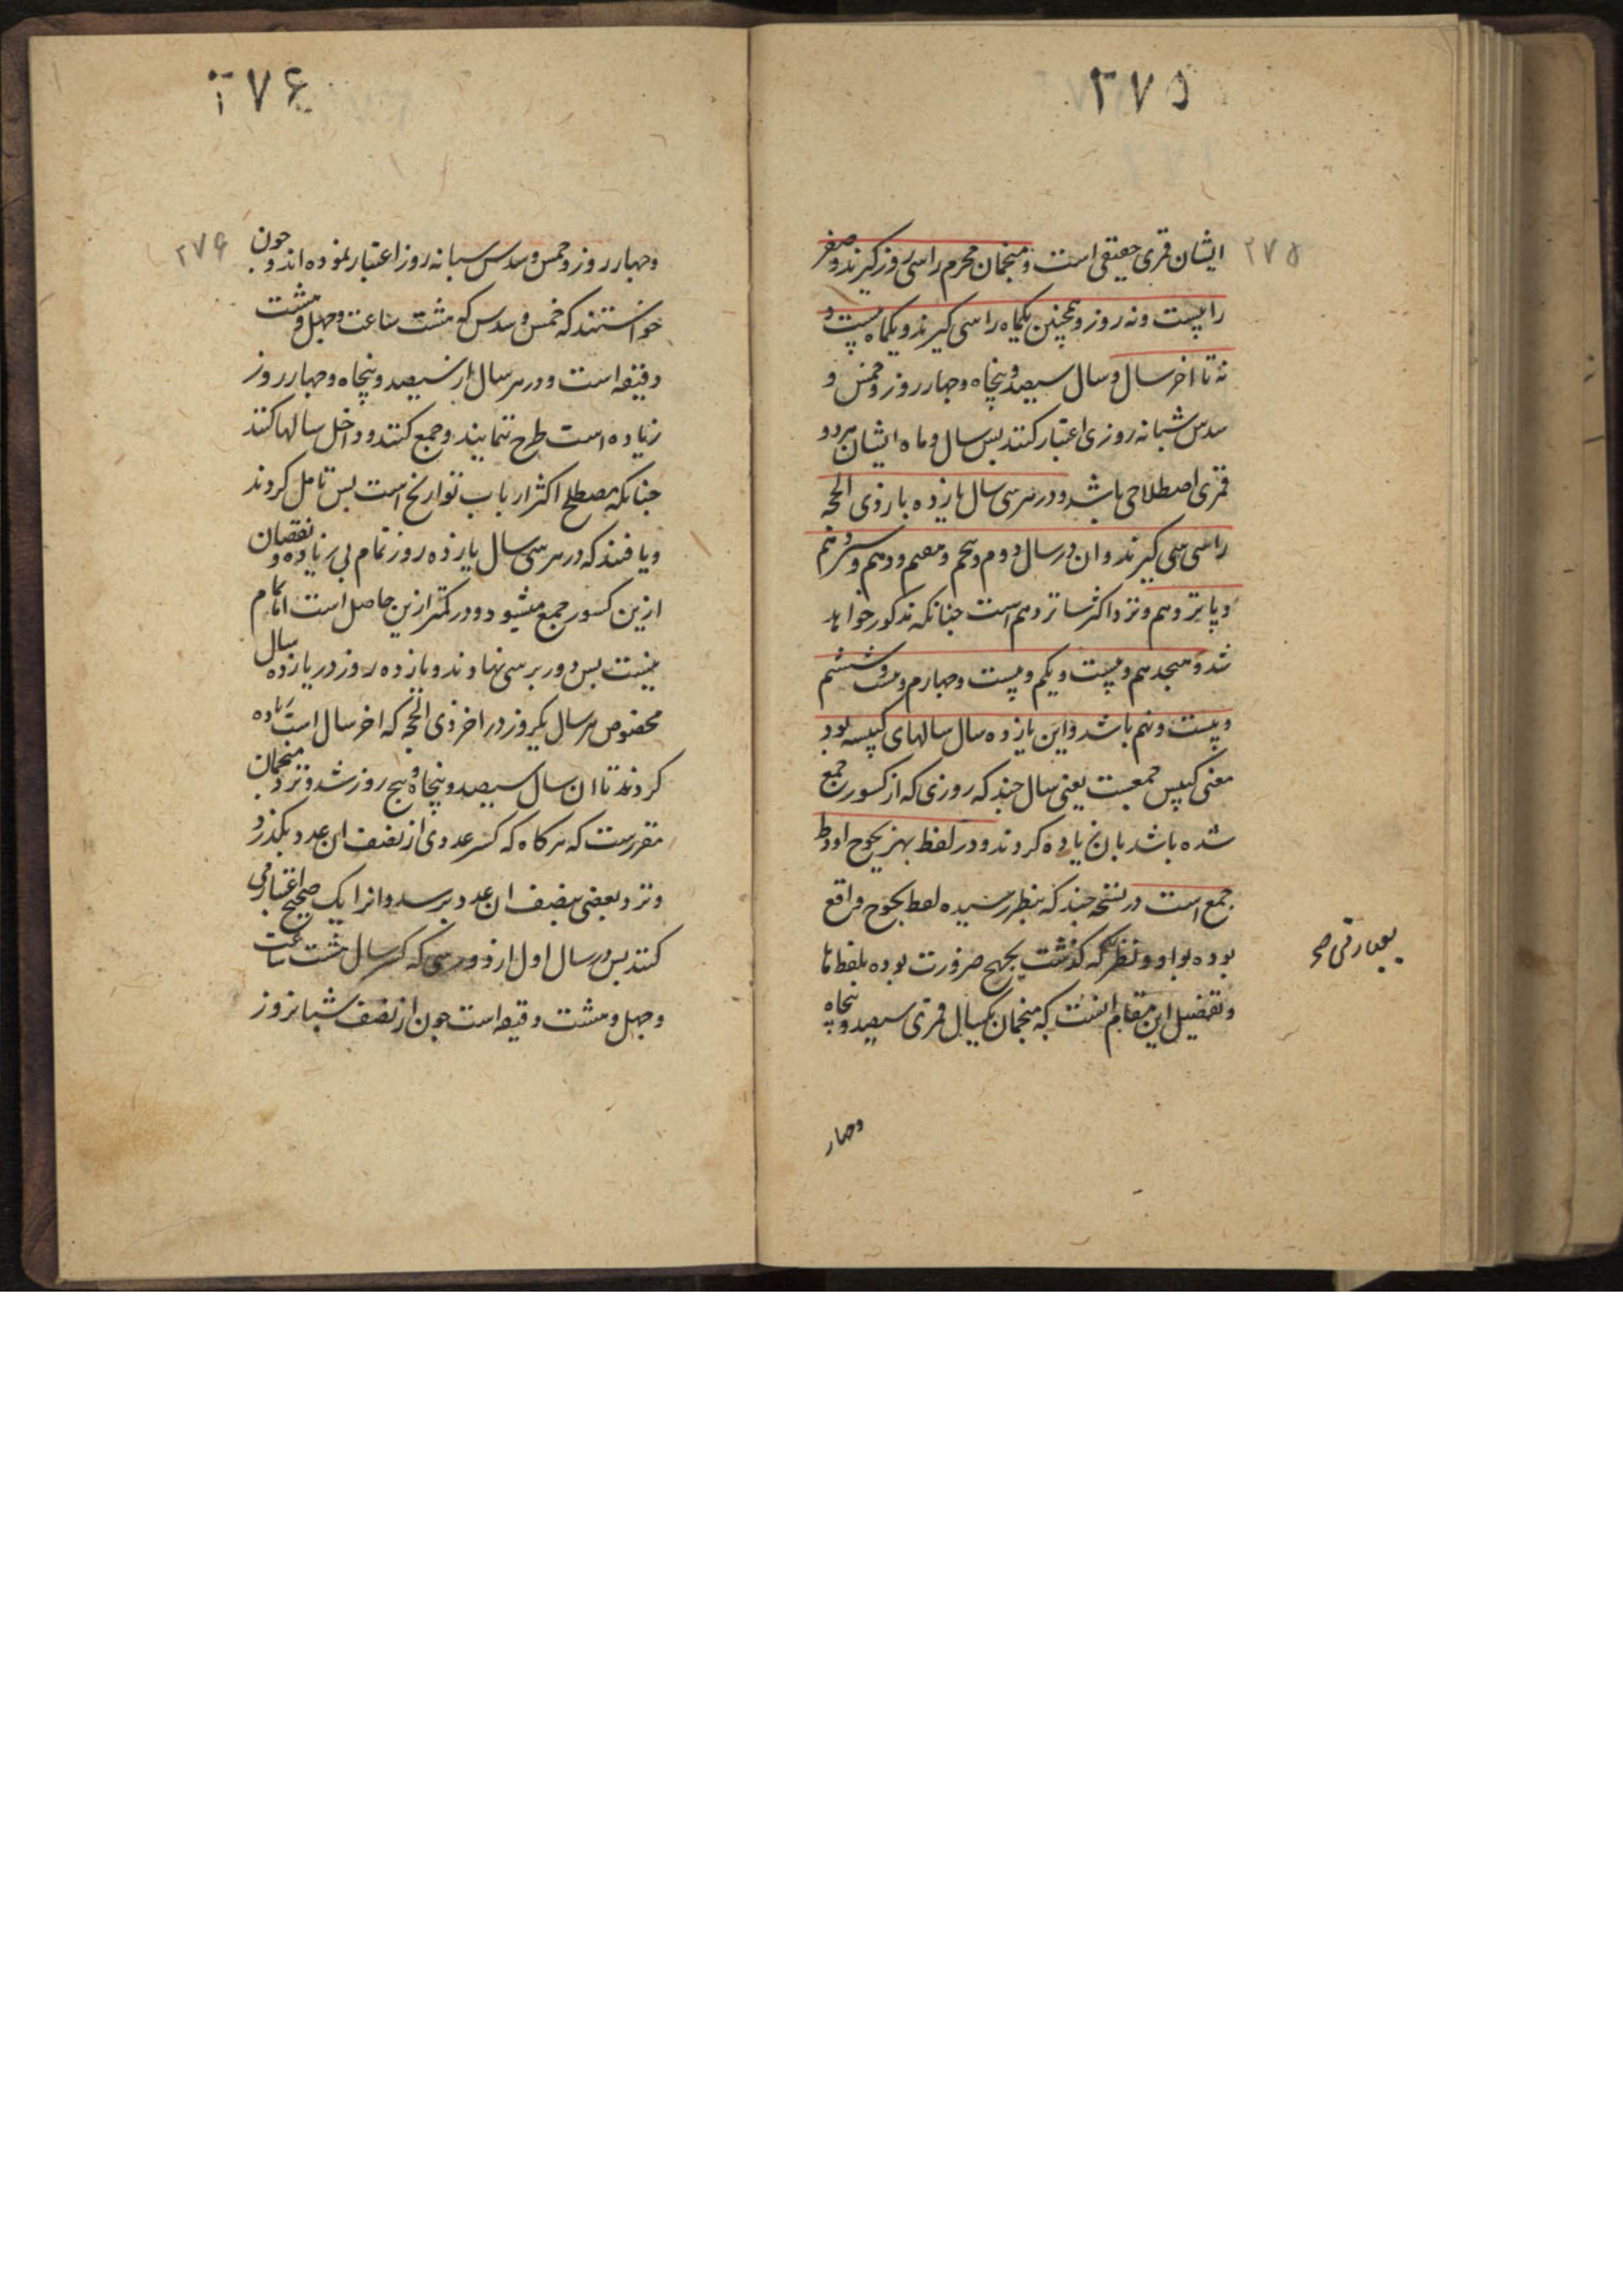 ۲۷۵
۲۷۵
ایشان قمری حقیقی است و منجمان محرم را سی روز کیرند و صفر
را بیست و نه روز و همچنین یکماه را سی کیرند و یکماه بیست و
نه تا اخر سال و سال سیصد و پنجاه و چهار روز و خمس و
سدس شبانه روزی اعتبار کنند بس سال و ماه ایشان هر دو
قمری اصطلاحی باشد و در هر سی سال یازده بار ذی الحجه
را سی سی کیرند و ان در سال دوم و پنجم و هفتم و دهم و سیزدهم
و پانزدهم و نزد اکثر شانزدهم است جنانکه مذکور خواهد
شد و هیجدهم و بیست و یکم و بیست و جهارم و بیست و ششم
و بیست و نهم باشد و این یازده سال سالهای کبیسه بود
معنی کبس جمعست یعنی سال جند که روزی که از کسور جمع
شده باشد بان زیاده کردند و در لفظ بهزیجوح ادوط
جمع است در نسخه جند که بنظر رسیده لفظ بجوح واقع
بوده بواو و نظر که کذشت بجهح ضرورت بوده بلفظ ها
و تفضیل این مقام انست که منجمان یکسال قمری سیصد و پنجاه
وجهار
۲۷۶
۲۷۶
وجهار روز و خمس و سدس شبانه روز اعتبار نموده اند و جون
خواستند که خمس و سدس که هشت ساعت و جهل و هشت
دقیقه است و در هر سال از سیصد و پنجاه و جهار روز
زیاده است طرح ننمایند و جمع کنند و داخل سالها کنند
جنانکه مصطلح اکثر ارباب تواریخ است بس تامل کردند
و یافتند که در هر سی سال یازده روز تمام بی زیاده و نقصان
ازین کسور جمع میشود و در کمتر ازین حاصل است اما تمام
نیست بس دور بر سی نهادند و یازده روز در یازده سال
مخصوص هر سال یکروز در اخر ذی الحجه که اخر سال است زیاده
کردند تا ان سال سیصد و پنجاه و پنج روز شد و نزد منجمان
مقررست که هرکاه که کسر عددی از نصف ان عدد بکذرد
و نزد بعضی بنصف ان عدد برسد و انرا یک صحیح اعتبار می
کنند بس در سال اول از دور سی که کسر سال هشت ساعت
و جهل و هشت دقیقه است جون از نصف شبانروز